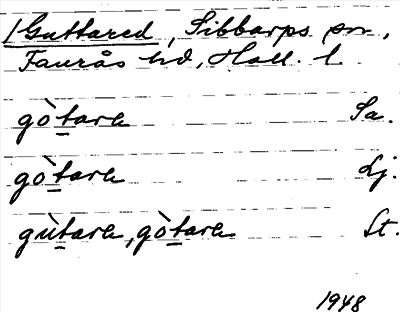 /Guttared, Sibbarps sn,
Faurås hd, Hall. l.
gòtarɛ Sa.
gòtarɛ Lj.
gùtarɛ, gòtarɛ St.
1948